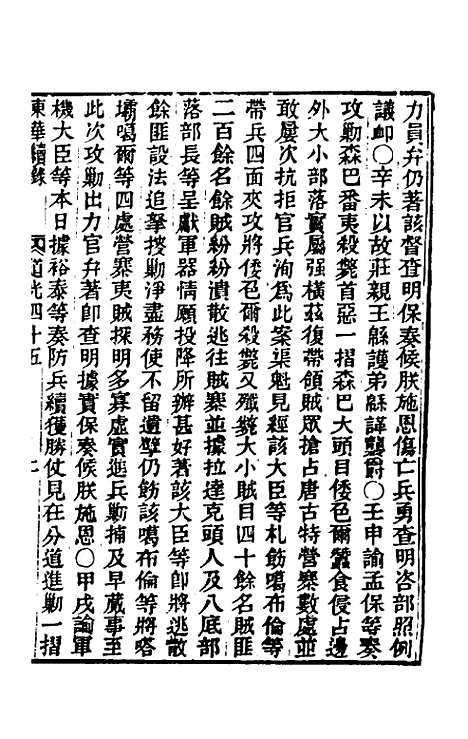 力員弁仍著該督查明保奏候朕施恩傷亡兵勇查明咨部照例
議卹〇辛未以故莊親王緜護弟緜譁襲爵〇壬申諭孟保等奏
攻勦森巴番夷殺斃首惡一摺森巴大頭目倭色爾蠶食侵占邊
外大小部落實屬强橫茲復帶領賊眾搶占唐古特營寨數處並
敢屢次抗拒官兵洵爲此案渠魁見經該大臣等札飭噶布倫等
帶兵四面夾攻將倭色爾殺斃又殲斃大小賊目四十餘名賊匪
二百餘名餘賊紛紛潰散逃往賊寨並據拉達克頭人及八底部
落部長等呈獻軍器情願投降所辦甚好著該大臣等卽將逃散
餘匪設法追拏搜勦淨盡務使不留遺孽仍飭該噶布倫等將喀
壩噶爾等四處營寨夷賊探明多寡虛實遄兵勦捕及早蕆事至
此次攻勦出力官弁著卽查明據實保奏候朕施恩〇甲戌諭軍
機大臣等本日據裕泰等奏防兵續獲勝仗見在分道進勦一摺
東華續錄 道光四十五